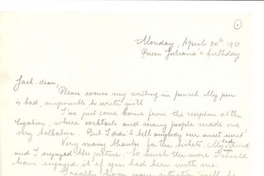 Monday, April 30th 1951
Queen Juliana's birthday
Jack dear,
Please excuse my writing in pencil. My pen
is bad, impossible to write with
I've just come home from the reception at the
Legation, where cocktails and many people made me
very talkative. But I didn't tell anybody our sweet secret
Very many thanks for the ticket. My friend
and I enjoyed the picture. So much the more I would
have enjoyed it if you had been with me.